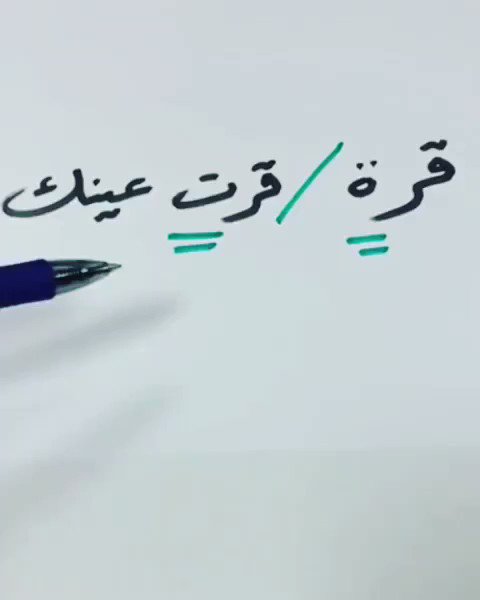 قرة / قرت عينك